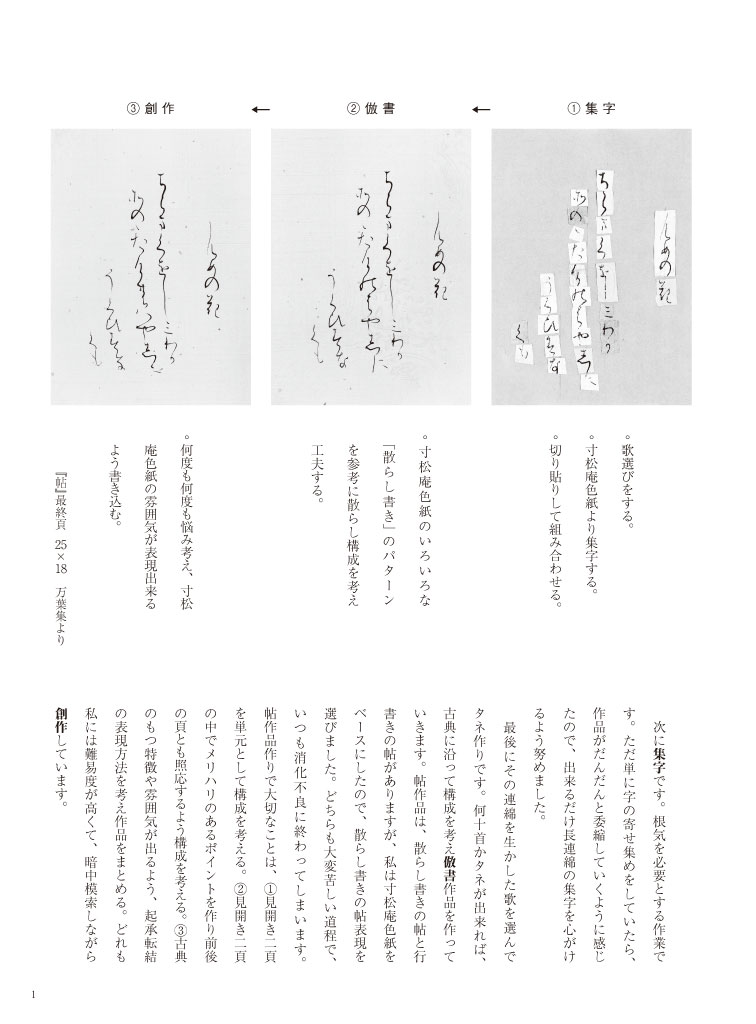 ① 集字
② 倣書
③ 創作
。歌選びをする。
。寸松庵色紙より集字する。
。切り貼りして組み合わせる。
。寸松庵色紙のいろいろな
「散らし書き」のパターン
を参考に散らし構成を考え
工夫する。
。何度も何度も悩み考え、寸松
庵色紙の雰囲気が表現出来る
よう書き込む。
『帖』最終頁 25×18 万葉集より
次に集字です。根気を必要とする作業で
す。ただ単に字の寄せ集めをしていたら、
作品がだんだんと委縮していくように感じ
たので、出来るだけ長連綿の集字を心がけ
るよう努めました。
最後にその連綿を生かした歌を選んで
タネ作りです。何十首かタネが出来れば、
古典に沿って構成を考え倣書作品を作って
いきます。帖作品は、散らし書きの帖と行
書きの帖がありますが、私は寸松庵色紙を
ベースにしたので、散らし書きの帖表現を
選びました。どちらも大変苦しい道程で、
いつも消化不良に終わってしまいます。
帖作品作りで大切なことは、①見開き二頁
を単元として構成を考える。②見開き二頁
の中でメリハリのあるポイントを作り前後
の頁とも照応するよう構成を考える。③古典
のもつ特徴や雰囲気が出るよう、起承転結
の表現方法を考え作品をまとめる。どれも
私には難易度が高くて、暗中模索しながら
創作しています。
1